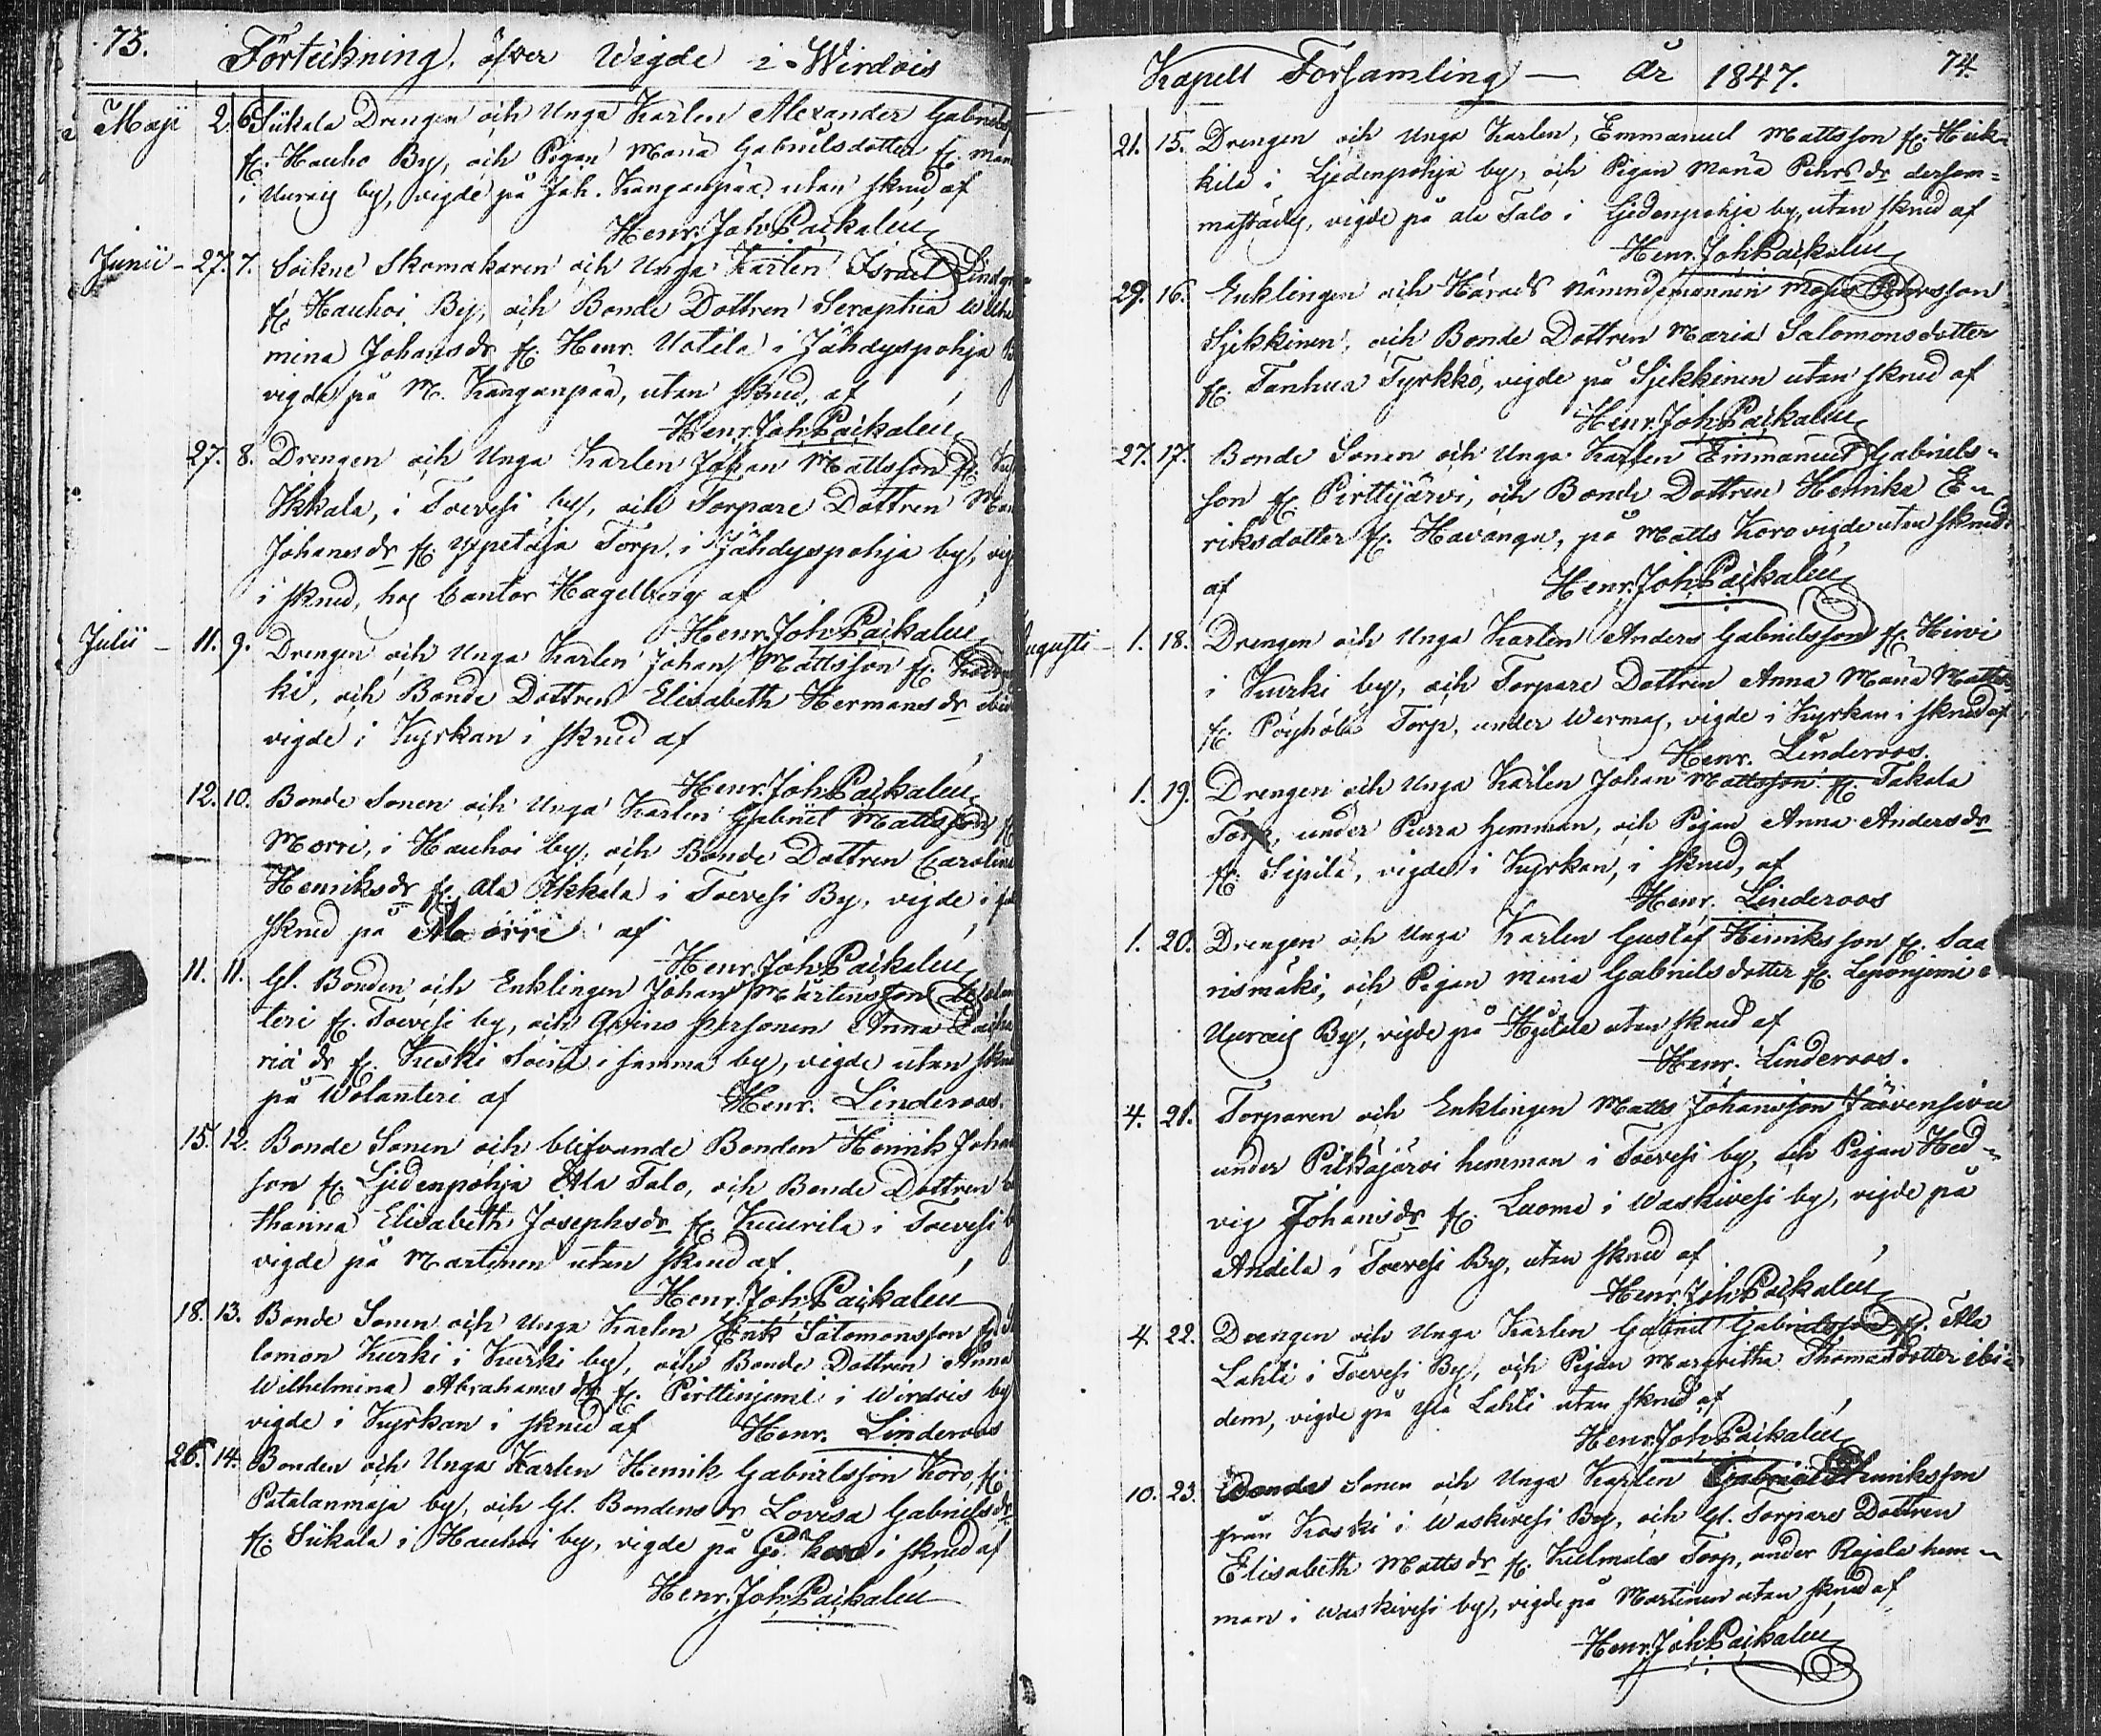 73. Förteckning öfver Wigde i Wirdois
Maji 2. 6. Siikala Drengen och Unga Karlen Alexander Gabriels
fr. Hauho By, och Pigan Maria Gabrielsdotter fr.
i Uurais by, vigde på Joh. Kanganpää utan skrud af
Henr. Joh. Paikalen
Junii - 27. 7. Sockne Skomakaren och Unga Karlen Israel Lindgr
fr. Hauhoi By, och Bonde Dottren Seraphia Wilhel
mina Johansdr fr. Henr. Uotila i Jähdyspohja B
vigde på M. Kanganpää, utan skrud, af
Henr. Joh. Paikalen
27. 8. Drengen och Unga Karlen Johan Mattsson fr.
Ikkala, i Toevesi by, och Torpare Dottren Mar
Johansdr fr. Ypetäjä Torp, i Jähdyspohja by, vig
i skrud, hos Cantor Hagelberg af
Henr. Joh. Paikalen
Julii - 11. 9. Drengen och Unga Karlen Johan Mattsson fr.
ki, och Bonde Dottren Elisabeth Hermansdr ibid
vigde i Kyrkan i skrud af
Henr. Joh. Paikalen
12. 10. Bonde Sonen och Unga Karlen Gabriel Mattsson fr
Morri, i Hauhoi by, och Bonde Dottren Carolina
Henriksdr fr. Ala Ikkala i Toevesi By, vigde i
skrud på Morri af
Henr. Joh. Paikalen
11. 11. Gl. Bonden och Enklingen Johan Mårtensson Wolan
teri fr. Toevesi by, och Qvins personen Anna
ria dr fr. Kuski Soini i samma by, vigde utan skru
på Wolanteri af Henr. Linderoos.
15. 12. Bonde Sonen och blifvande Bonden Henrik Johan
son fr. Ljedenpohja Ala Talo, och Bonde Dottren
thanna Elisabeth Josephsdr fr. Kuurila i Toevesi b
vigde på Martinen utan skrud af.
Henr. Joh. Paikalen
18. 13. Bonde Sonen och Unga Karlen Erik Salomonsson fr. Sa
lomon Kurki i Kurki by, och Bonde Dottren Anna
Wilhelmina Abrahamsdr fr. Pirttinjemi i Wirdois by
vigde i Kyrkan i skrud af Henr. Linderoos
26. 14. Bonden och Unga Karlen Henrik Gabrielsson Koro, fr.
Patalanmaja by, och Gl. Bondens dr Lovisa Gabrielsdr
fr. Siikala i Hauhoi by, vigde på Gl. Koro i skrud af
Henr. Joh. Paikalen
Kapell Församling — År 1847. 74.
21. 15. Drengen och Unga Karlen, Emmanuel Mattsson fr. Heik-
kilä i Ljedenpohja by, och Pigan Maria Pehrsdr dersam=
mastädes, vigde på Ala Talo i Ljedenpohja by, utan skrud af
Henr. Joh. Paikalen
29. 16. Enklingen och Härads nämndemannen Mats Pehrsson
Sjekkinen, och Bonde Dottren Maria Salomonsdotter
fr. Tanhua Tyrkkö, vigde på Sjekkinen utan skrud af
Henr. Joh. Paikalen
27. 17. Bonde Sonen och Unga Karlen Emmanuel Gabriels-
son fr. Pirttijärvi, och Bonde Dottren Henrika E-
riksdotter fr. Havanga, på Matts Koro vigde utan skrud
af Henr. Joh. Paikalen
Augusti - 1. 18. Drengen och Unga Karlen Anders Gabrielsson fr. Hirvi
i Kurki by, och Torpare Dottren Anna Maria Matts
fr. Pöyhölä Torp, under Wermas, vigde i Kyrkan i skrud af
Henr. Linderoos
1. 19. Drengen och Unga Karlen Johan Mattsson fr. Takala
Torp, under Purra hemman, och Pigan Anna Andersdr
fr. Sipilä, vigde i Kyrkan, i skrud, af
Henr. Linderoos
1. 20. Drengen och Unga Karlen Gustaf Henriksson fr. Saa
rismäki, och Pigan Mina Gabrielsdotter fr. Leponjemi
Uurais By, vigde på utan skrud af
Henr. Linderoos.
4. 21. Torparen och Enklingen Matts Johansson Jäävensivu
under Pitkäjärvi hemman i Toevesi by, och Pigan Hed-
vig Johansdr fr. Luoma i Waskivesi by, vigde på
Andila i Toevesi By, utan skrud af
Henr. Joh. Paikalen
4. 22. Drengen och Unga Karlen Gabriel Gabrielsson fr. Ala
Lahti i Toevesi By, och Pigan Margretha Thomasdotter ibi-
dem, vigde på Ylä Lahti utan skrud af
Henr. Joh. Paikalen
10. 23. Bonde Sonen och Unga Karlen Gabriel Henriksson
från Koski i Waskivesi By, och Gl. Torpare Dottren
Elisabeth Mattsdr fr. Kulmala Torp, under Rajala hem-
man i Waskivesi by, vigde på Martinen utan skrud af
Henr. Joh. Paikalen